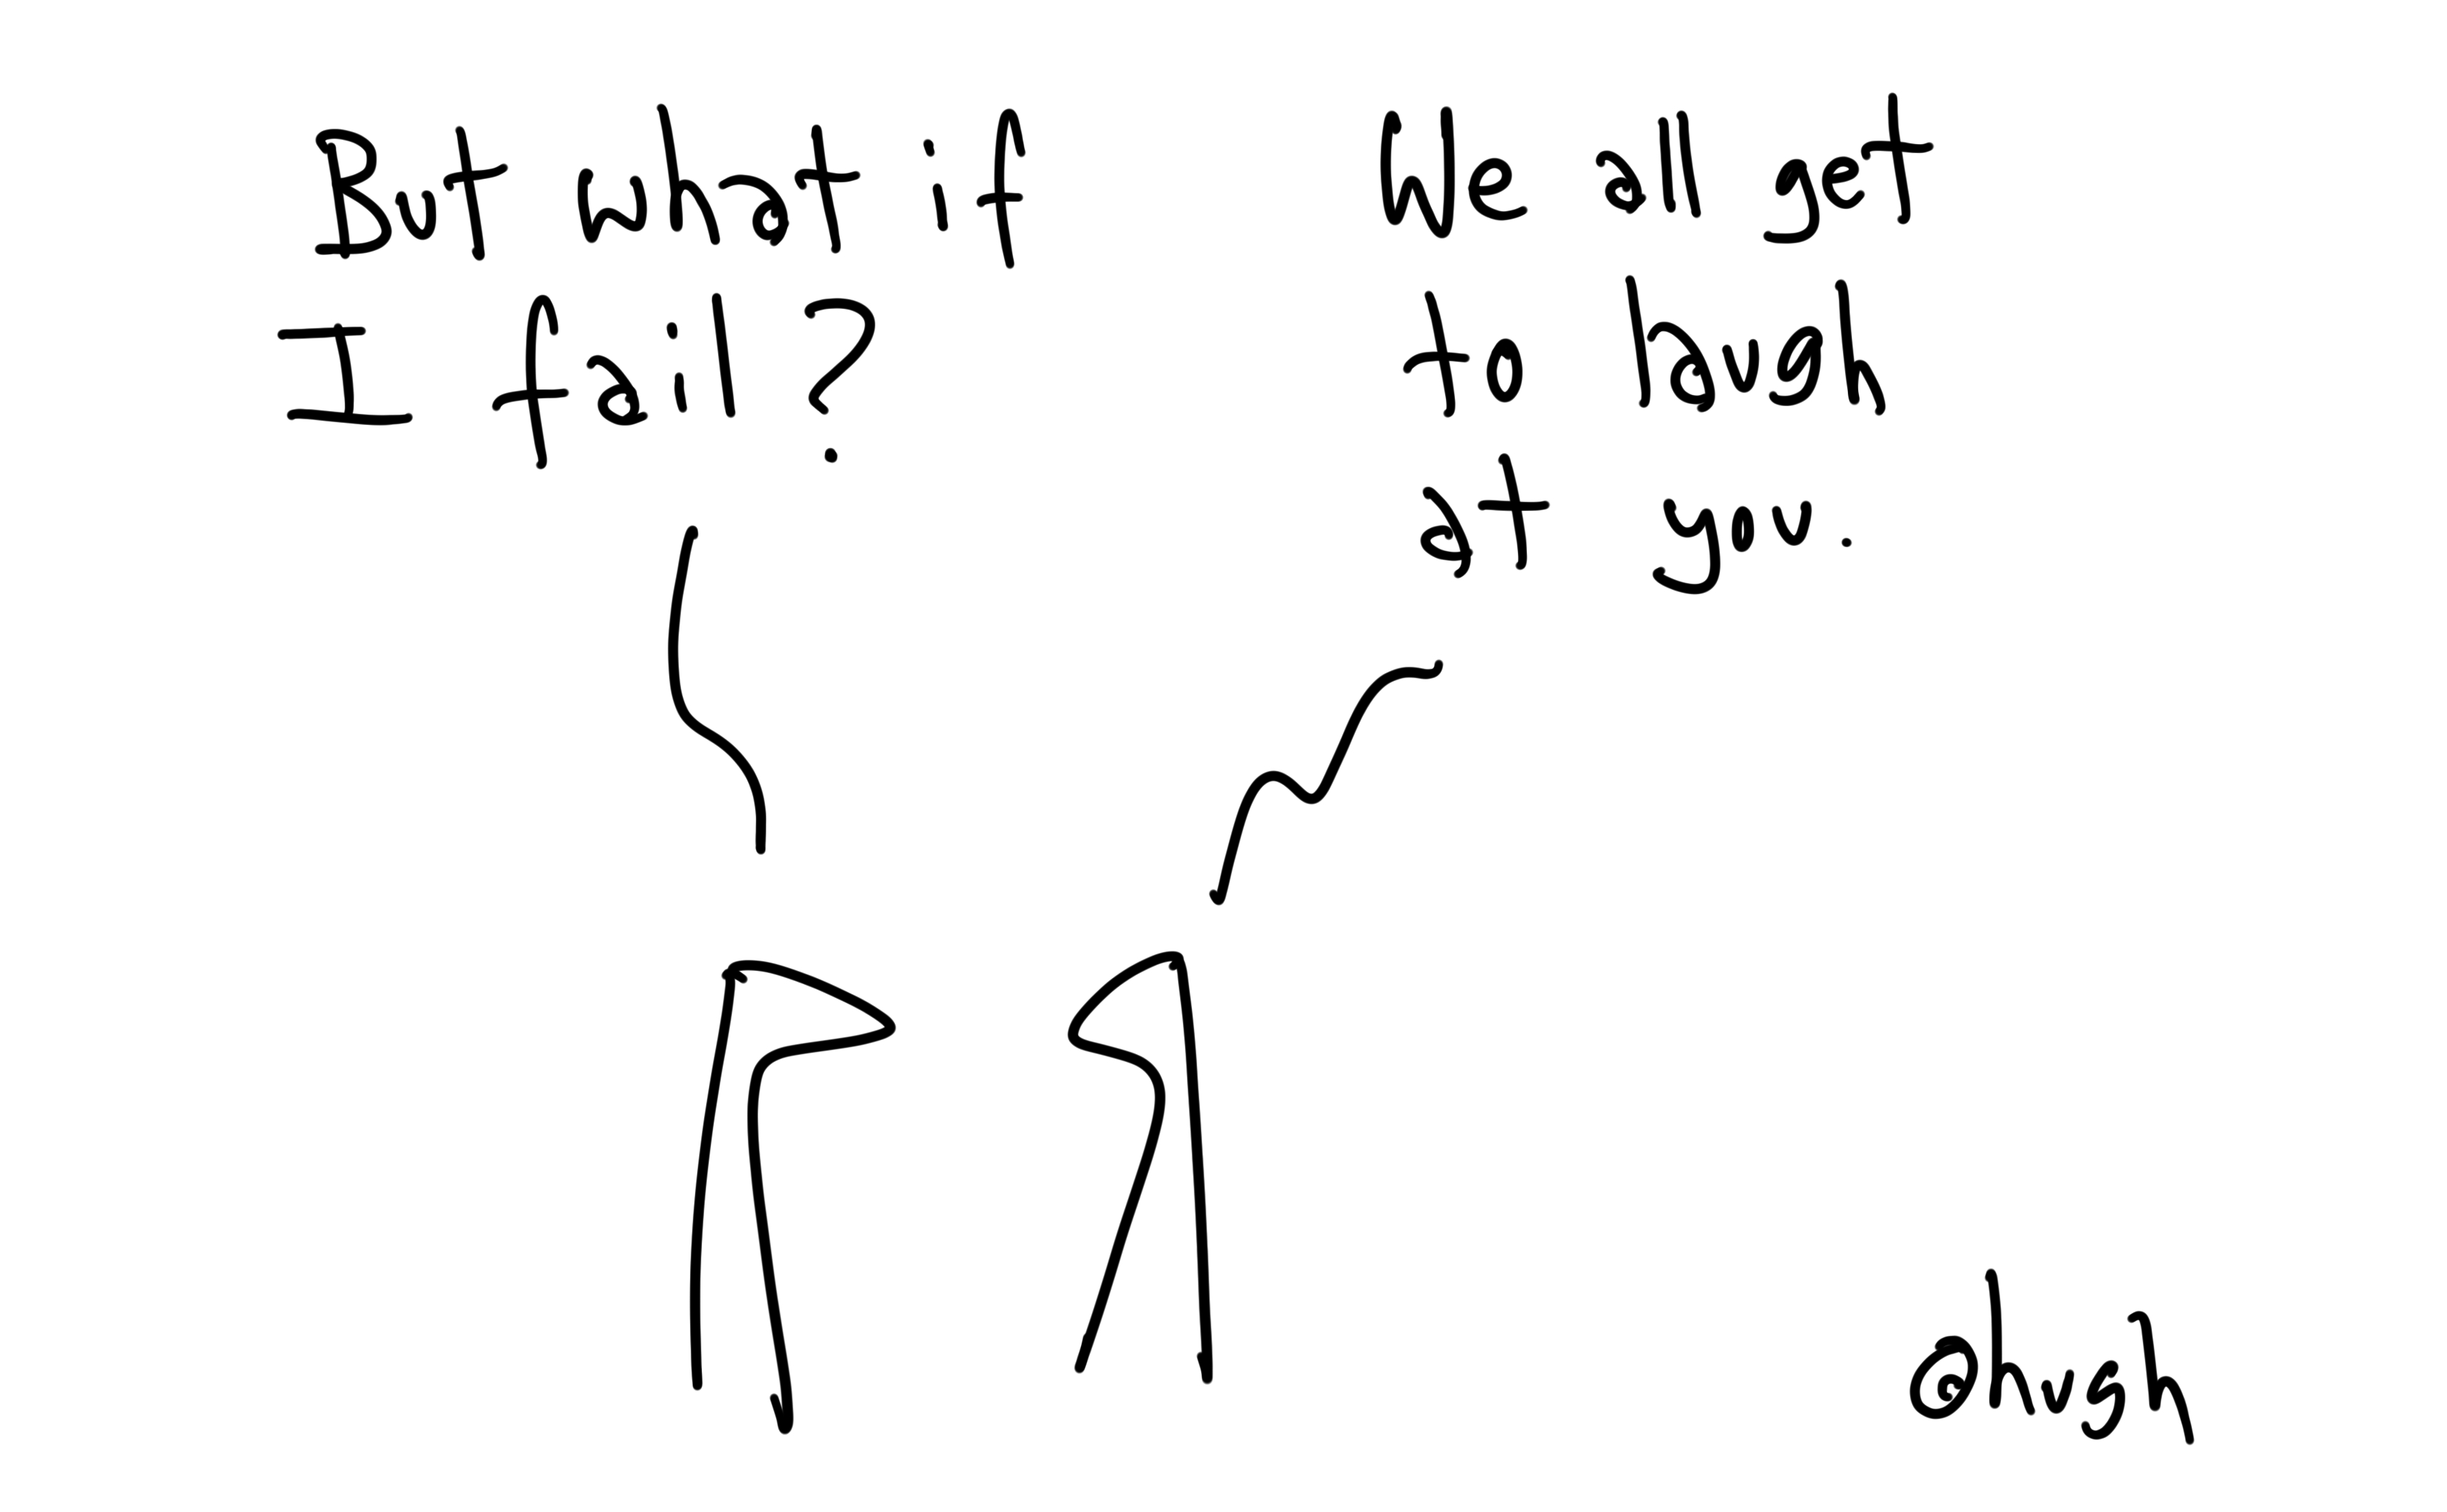 But what if
I fail?
We all get
to laugh
at you.
@hugh